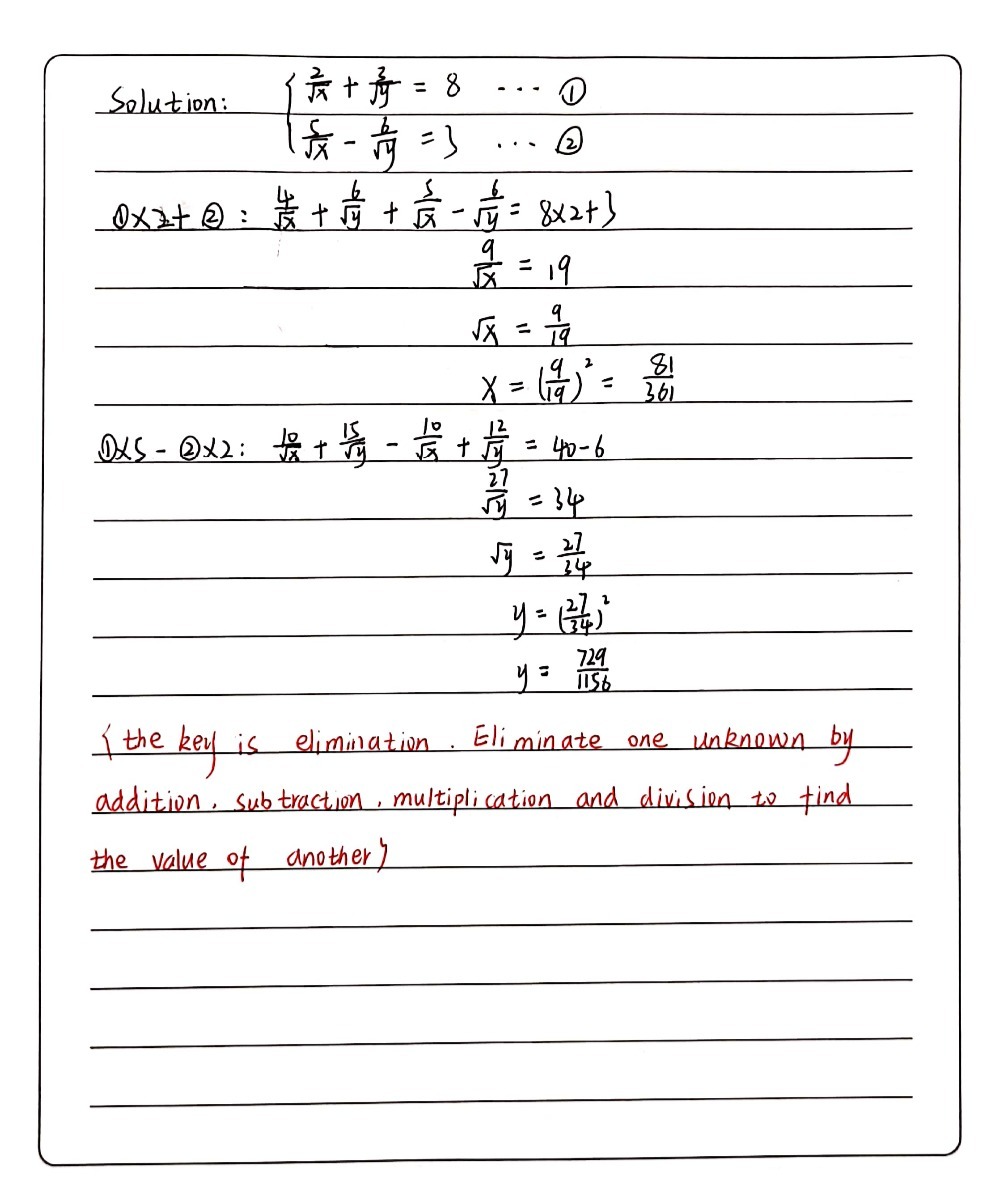 Solution: { 2/√x + 3/√y = 8 ... ①
5/√x - 6/√y = 3 ... ②
①×2+②: 4/√x + 6/√y + 5/√x - 6/√y = 8×2+3
9/√x = 19
√x = 9/19
x = (9/19)² = 81/361
①×5 - ②×2: 10/√x + 15/√y - 10/√x + 12/√y = 40-6
27/√y = 34
√y = 27/34
y = (27/34)²
y = 729/1156
{ the key is elimination. Eliminate one unknown by
addition, subtraction, multiplication and division to find
the value of another}